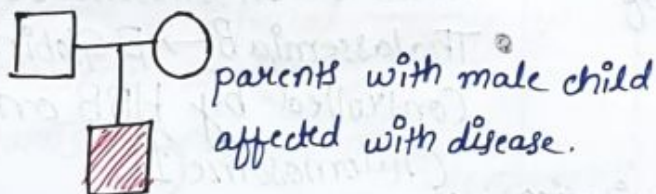 parents with male child
affected with disease.